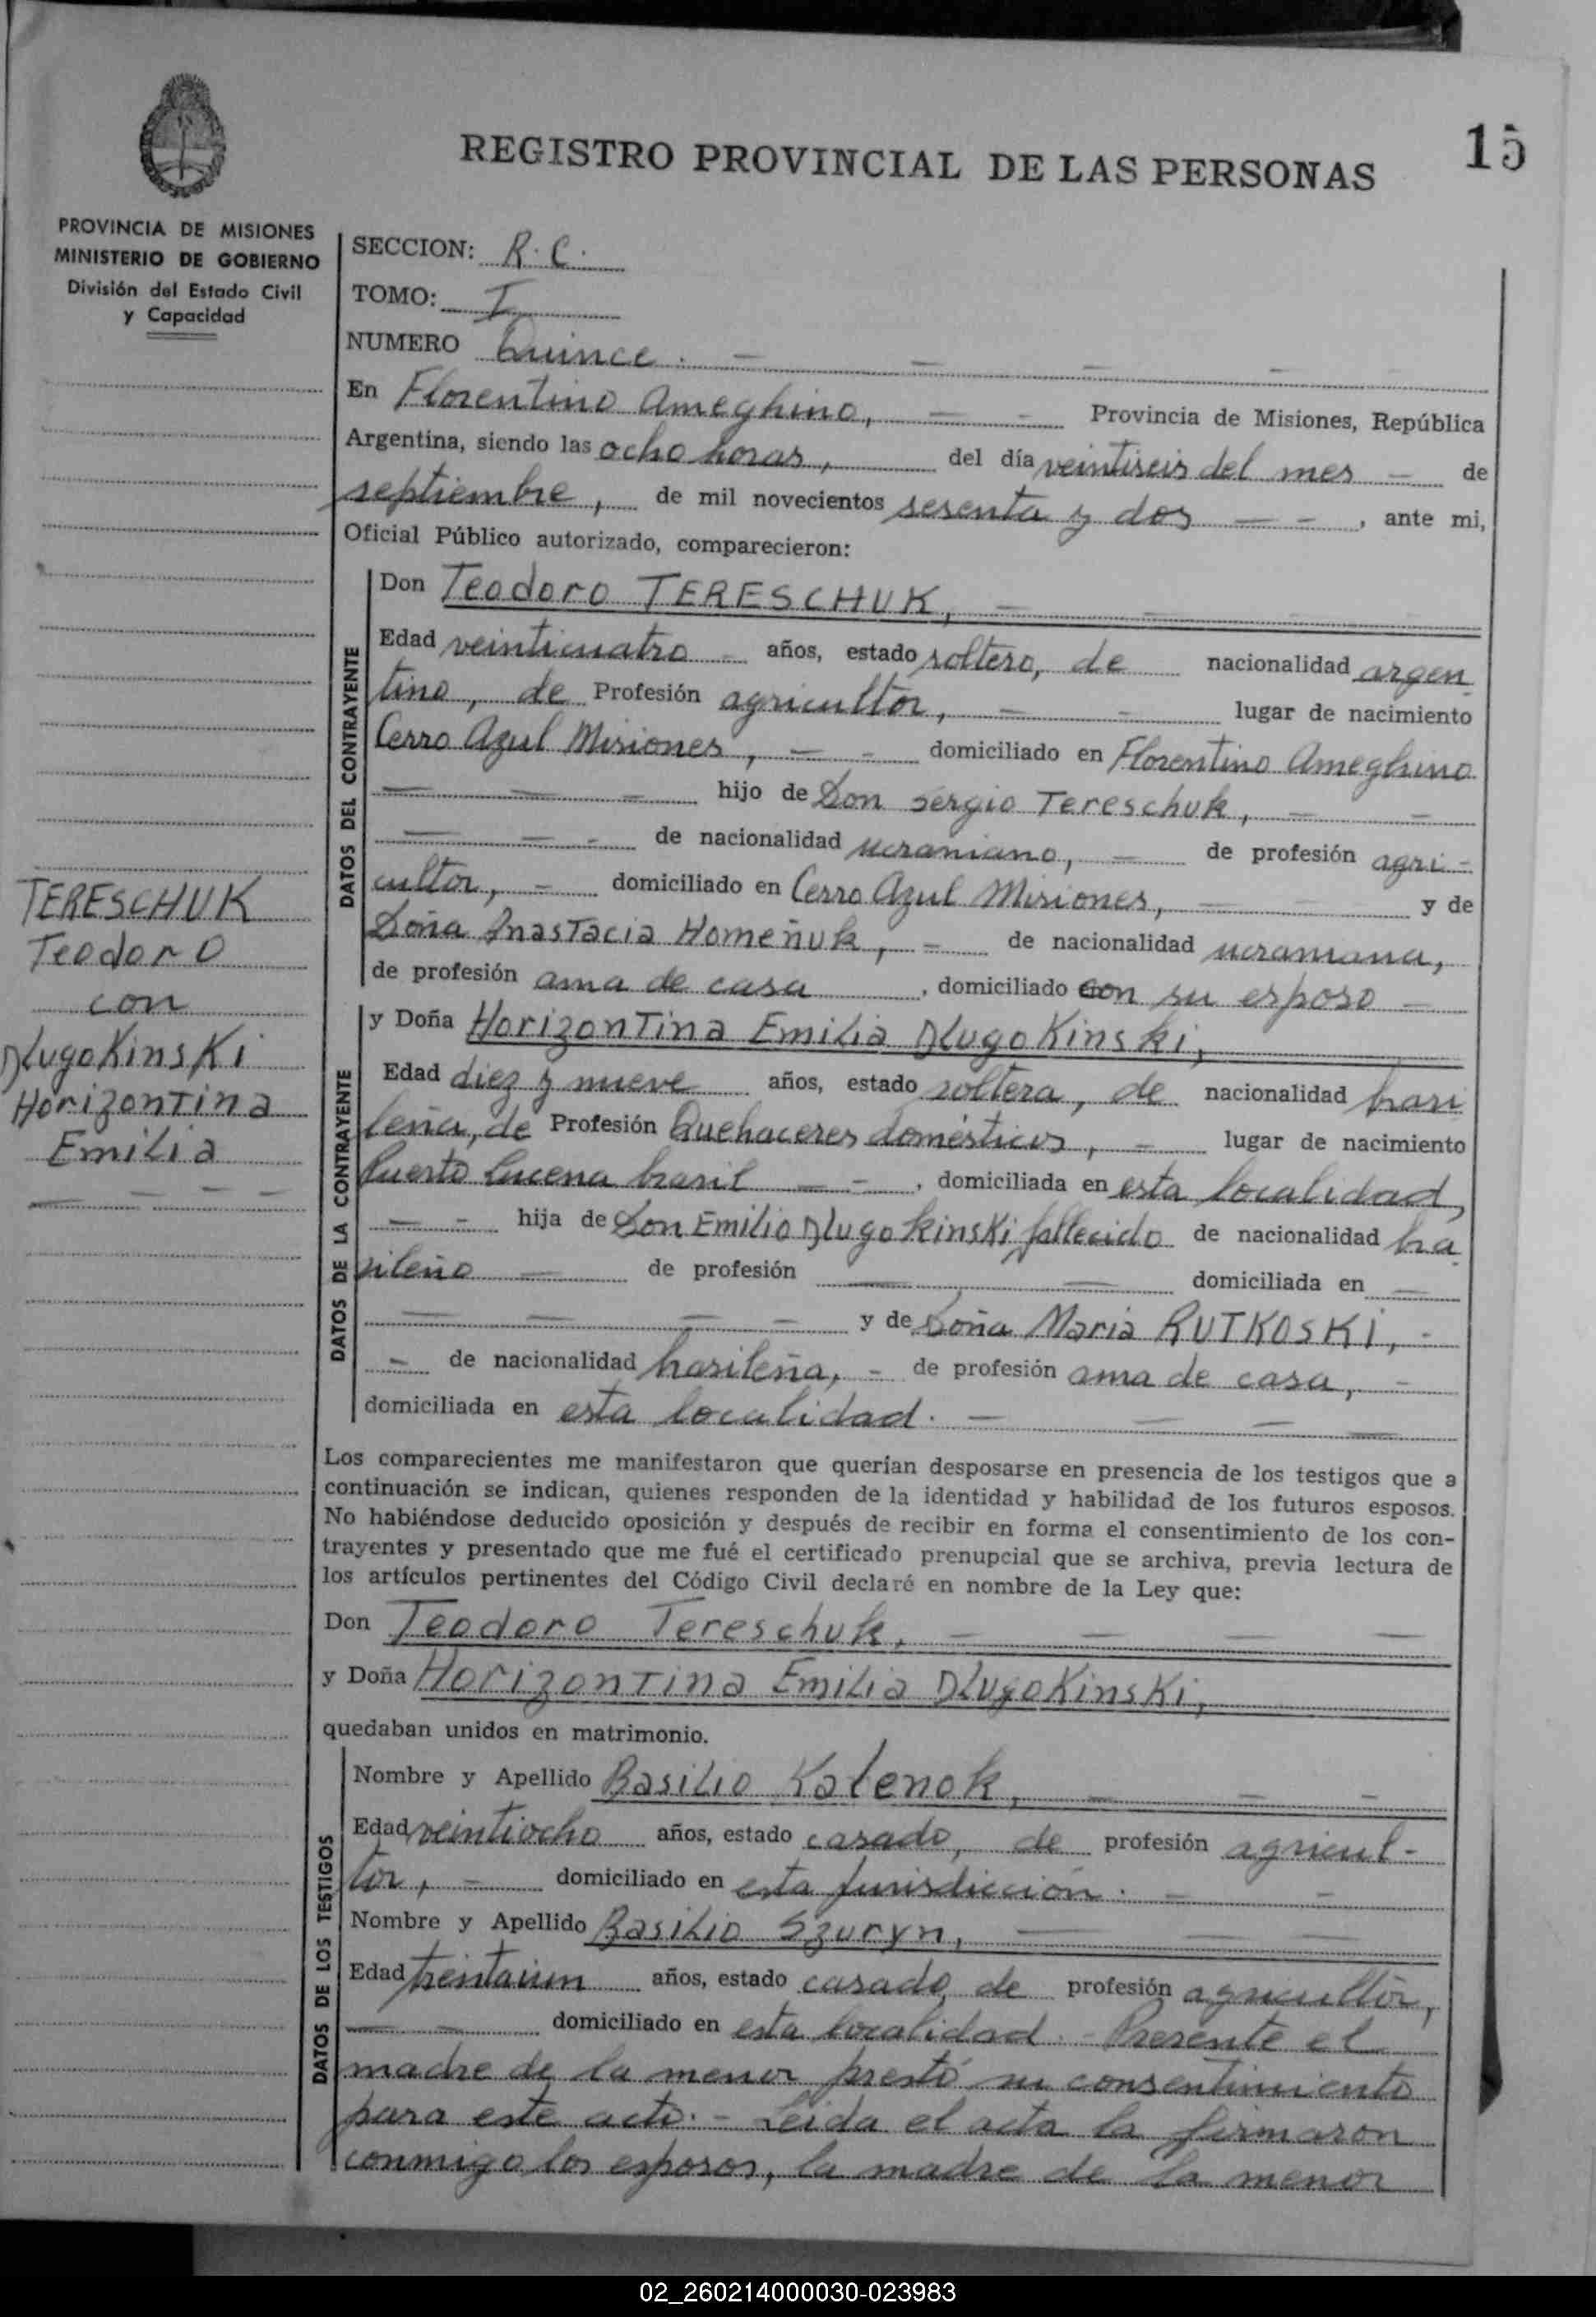 15
REGISTRO PROVINCIAL DE LAS PERSONAS
PROVINCIA DE MISIONES
MINISTERIO DE GOBIERNO
División del Estado Civil
y Capacidad
TERESCHUK
Teodoro
con
DlugoKinsKi
Horizontina
Emilia
SECCION: R. C.
TOMO: I
NUMERO Quince. — — — —
En Florentino Ameghino, — - Provincia de Misiones, República
Argentina, siendo las ocho horas, del día veintiseis del mes — de
septiembre, de mil novecientos sesenta y dos — - , ante mi,
Oficial Público autorizado, comparecieron:
DATOS DEL CONTRAYENTE
Don Teodoro TERESCHUK, — —
Edad veinticuatro - años, estado soltero, de nacionalidad argen
tino, de Profesión agricultor, — - lugar de nacimiento
Cerro Azul Misiones, — - domiciliado en Florentino Ameghino
— — — hijo de Don Sergio Tereschuk, — —
— — - de nacionalidad ucraniano, — de profesión agri-
cultor, - domiciliado en Cerro Azul Misiones, — — y de
Doña Anastacia Homeñuk, - de nacionalidad ucraniana,
de profesión ama de casa , domiciliado con su esposo —
DATOS DE LA CONTRAYENTE
y Doña Horizontina Emilia DlugoKinski,
Edad diez y nueve años, estado soltera, de nacionalidad brasi
leña, de Profesión Quehaceres domésticos, — lugar de nacimiento
Puerto Lucena brasil — - , domiciliada en esta localidad,
— - hija de Don Emilio DlugokinsKi fallecido de nacionalidad bra
sileño — de profesión — — domiciliada en —
— — — — y de Doña Maria RUTKOSKI, -
- de nacionalidad brasileña, - de profesión ama de casa, -
domiciliada en esta localidad. — — — —
Los comparecientes me manifestaron que querían desposarse en presencia de los testigos que a
continuación se indican, quienes responden de la identidad y habilidad de los futuros esposos.
No habiéndose deducido oposición y después de recibir en forma el consentimiento de los con-
trayentes y presentado que me fué el certificado prenupcial que se archiva, previa lectura de
los artículos pertinentes del Código Civil declaré en nombre de la Ley que:
Don Teodoro Tereschuk, — — — —
y Doña Horizontina Emilia DlugoKinsKi,
quedaban unidos en matrimonio.
DATOS DE LOS TESTIGOS
Nombre y Apellido Basilio Kalenok, — — -
Edad veintiocho años, estado casado, de profesión agricul-
tor, - domiciliado en esta jurisdicción. — -
Nombre y Apellido Basilio Szuryn, — — —
Edad treintaiun años, estado casado, de profesión agricultor,
— — domiciliado en esta localidad. - Presente el
madre de la menor prestó su consentimiento
para este acto. - Leida el acta la firmaron
conmigo los esposos, la madre de la menor
02_260214000030-023983